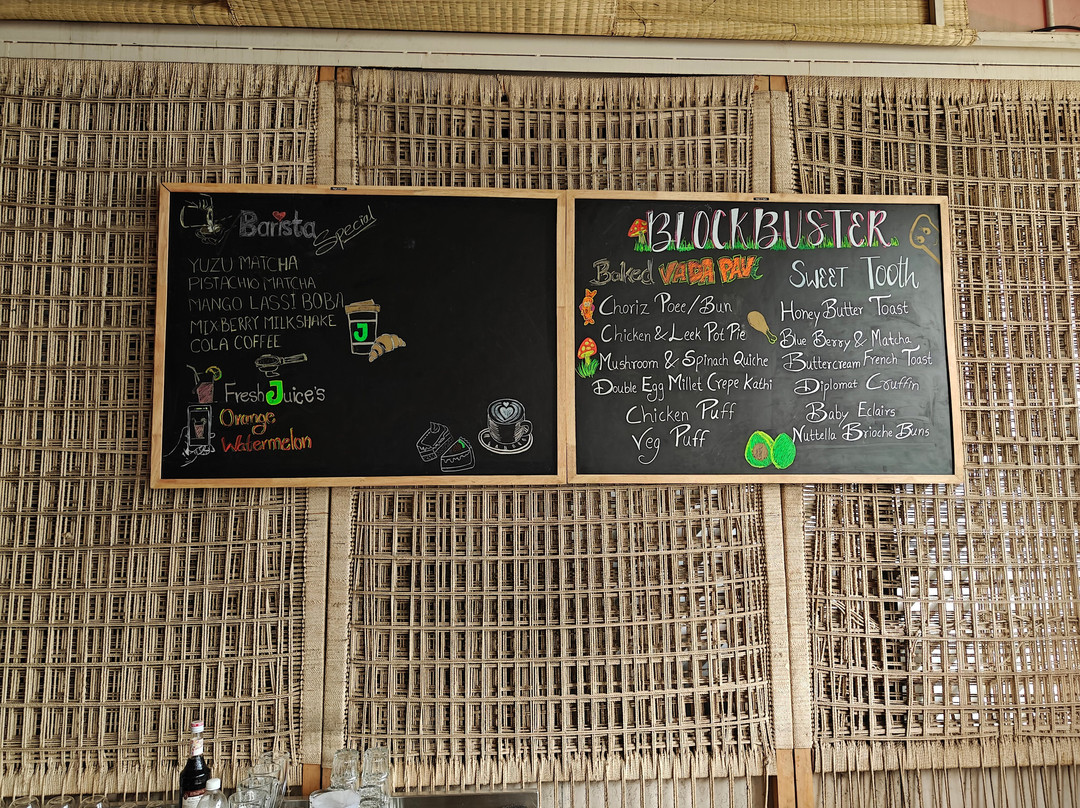 Barista
Special
YUZU MATCHA
PISTACHIO MATCHA
MANGO LASSI BOBA
MIXBERRY MILKSHAKE
COLA COFFEE
J
Fresh Juice's
Orange
Watermelon
BLOCKBUSTER
Baked VADA PAV
Choriz Poee/Bun
Chicken & Leek Pot Pie
Mushroom & Spinach Quiche
Double Egg Millet Crepe Kathi
Chicken Puff
Veg Puff
SWEET Tooth
Honey Butter Toast
Blue Berry & Matcha
Buttercream French Toast
Diplomat Cruffin
Baby Eclairs
Nuttella Brioche Buns